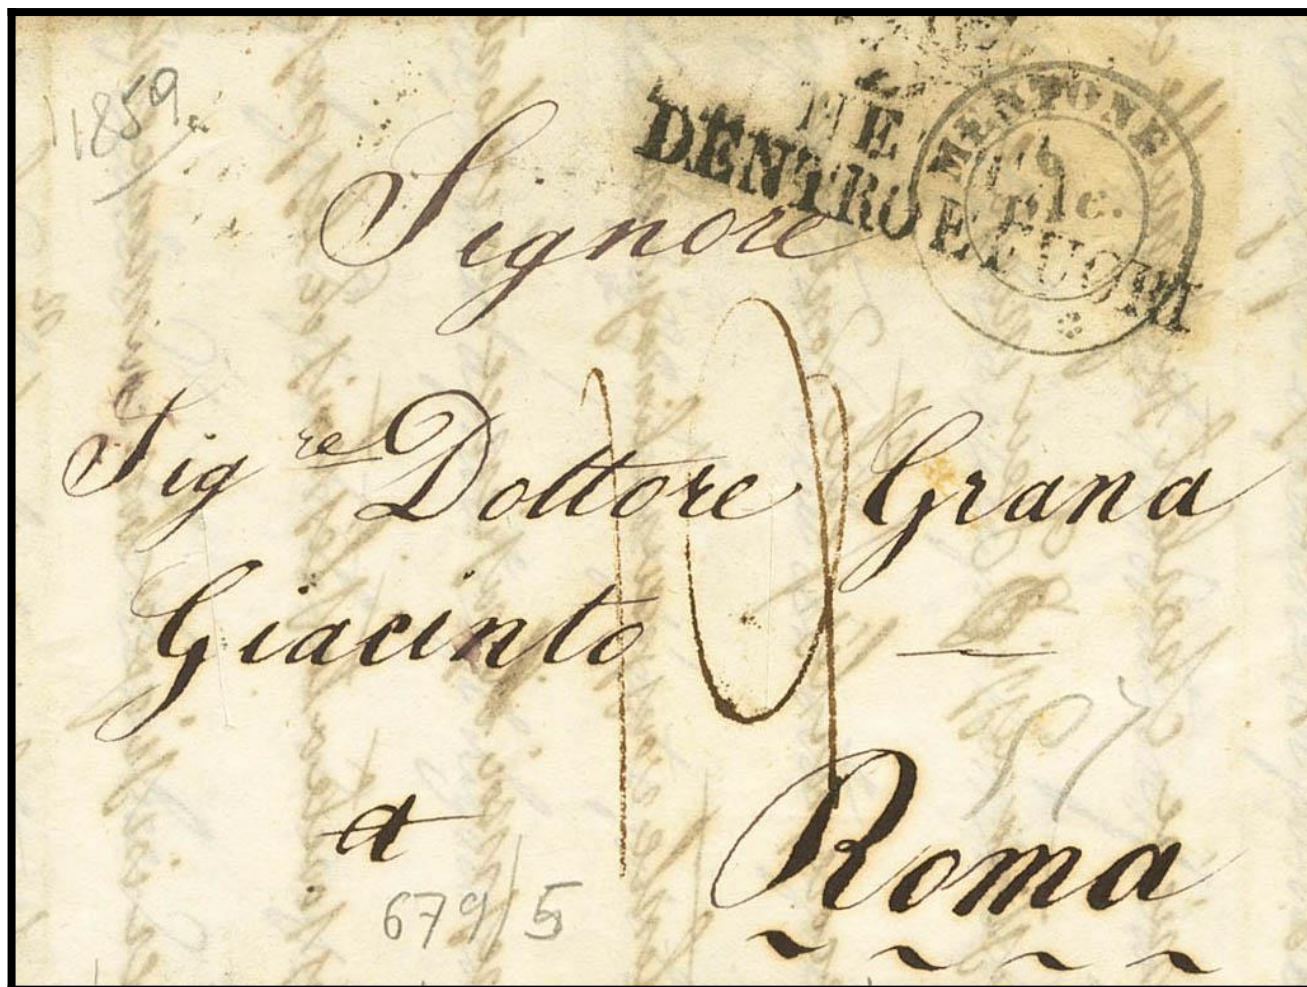 1859
DENTRO E FUORI
MENTONE
Dic.
Signore
Sigre Dottore Grana
Giacinto
19
a
Roma
679/5